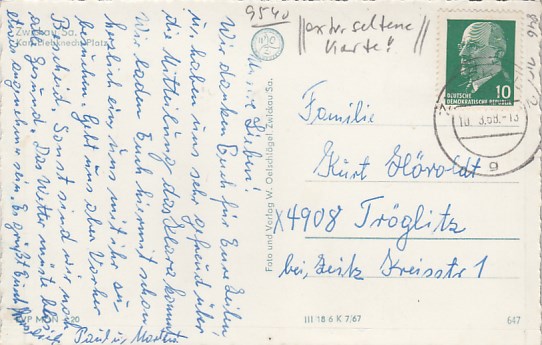 Zwickau Sa.
Karl-Liebknecht-Platz
Meine Lieben!
Wir danken Euch für Eure Zeilen,
wir haben uns sehr gefreud über
die Mitteilung das Klara kommt
Wir laden Euch hiermit schon
herzlich ein uns mit ihr zu
besuchen. Gebt uns aber Vorher
Bescheid. Sonst sind wir noch
alle Gesund. Das Wetter müste bloß
etwas angenehmer sein. Es grüßt Euch
Paul u. Martha
VVP MON 20
Foto und Verlag W. Oetschlägel Zwickau Sa.
9540
extr seltene
Karte!
DEUTSCHE
DEMOKRATISCHE REPUBLIK
10
18. 3.68.-13
g
Familie
Kurt Höroldt
x4908 Tröglitz
bei Zeitz Kreisstr 1
III 18 6 K 7/67
647